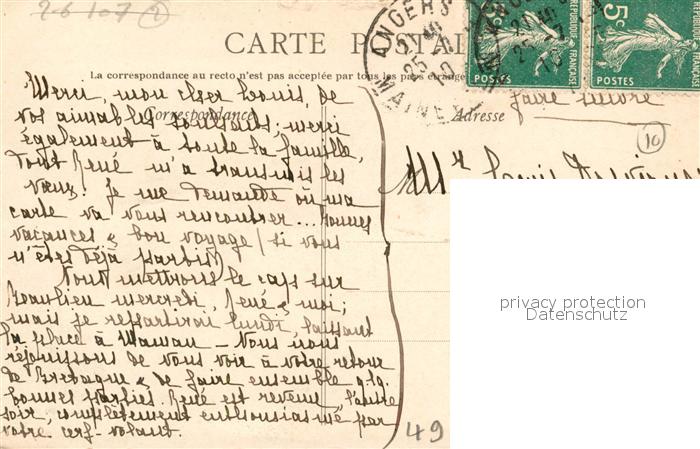 26 107
CARTE POSTALE
La correspondance au recto n'est pas acceptée par tous les pays étrangers
Correspondance
Adresse
faire suivre
10
ANGERS
25
10
MAINE
POSTES
RÉPUBLIQUE FRANÇAISE
POSTES
5c
RÉPUBLIQUE FRANÇAISE
Merci, mon cher Louis, de
vos aimables souhaits; merci
également à toute la famille,
dont René m'a transmis les
vœux. Je me demande où ma
carte va vous rencontrer... Bonnes
vacances & bon voyage (si vous
n'êtes déjà partis)
Nous mettrons le cap sur
Beaulieu mercredi, René & moi;
mais je repartirai lundi, laissant
la place à Maman - Nous nous
réjouissons de vous voir à votre retour
de Bretagne & de faire ensemble qlq.
bonnes parties. René est revenu, l'autre
soir, complètement enthousiasmé par
votre cerf-volant.
Mr Louis
49
privacy protection
Datenschutz